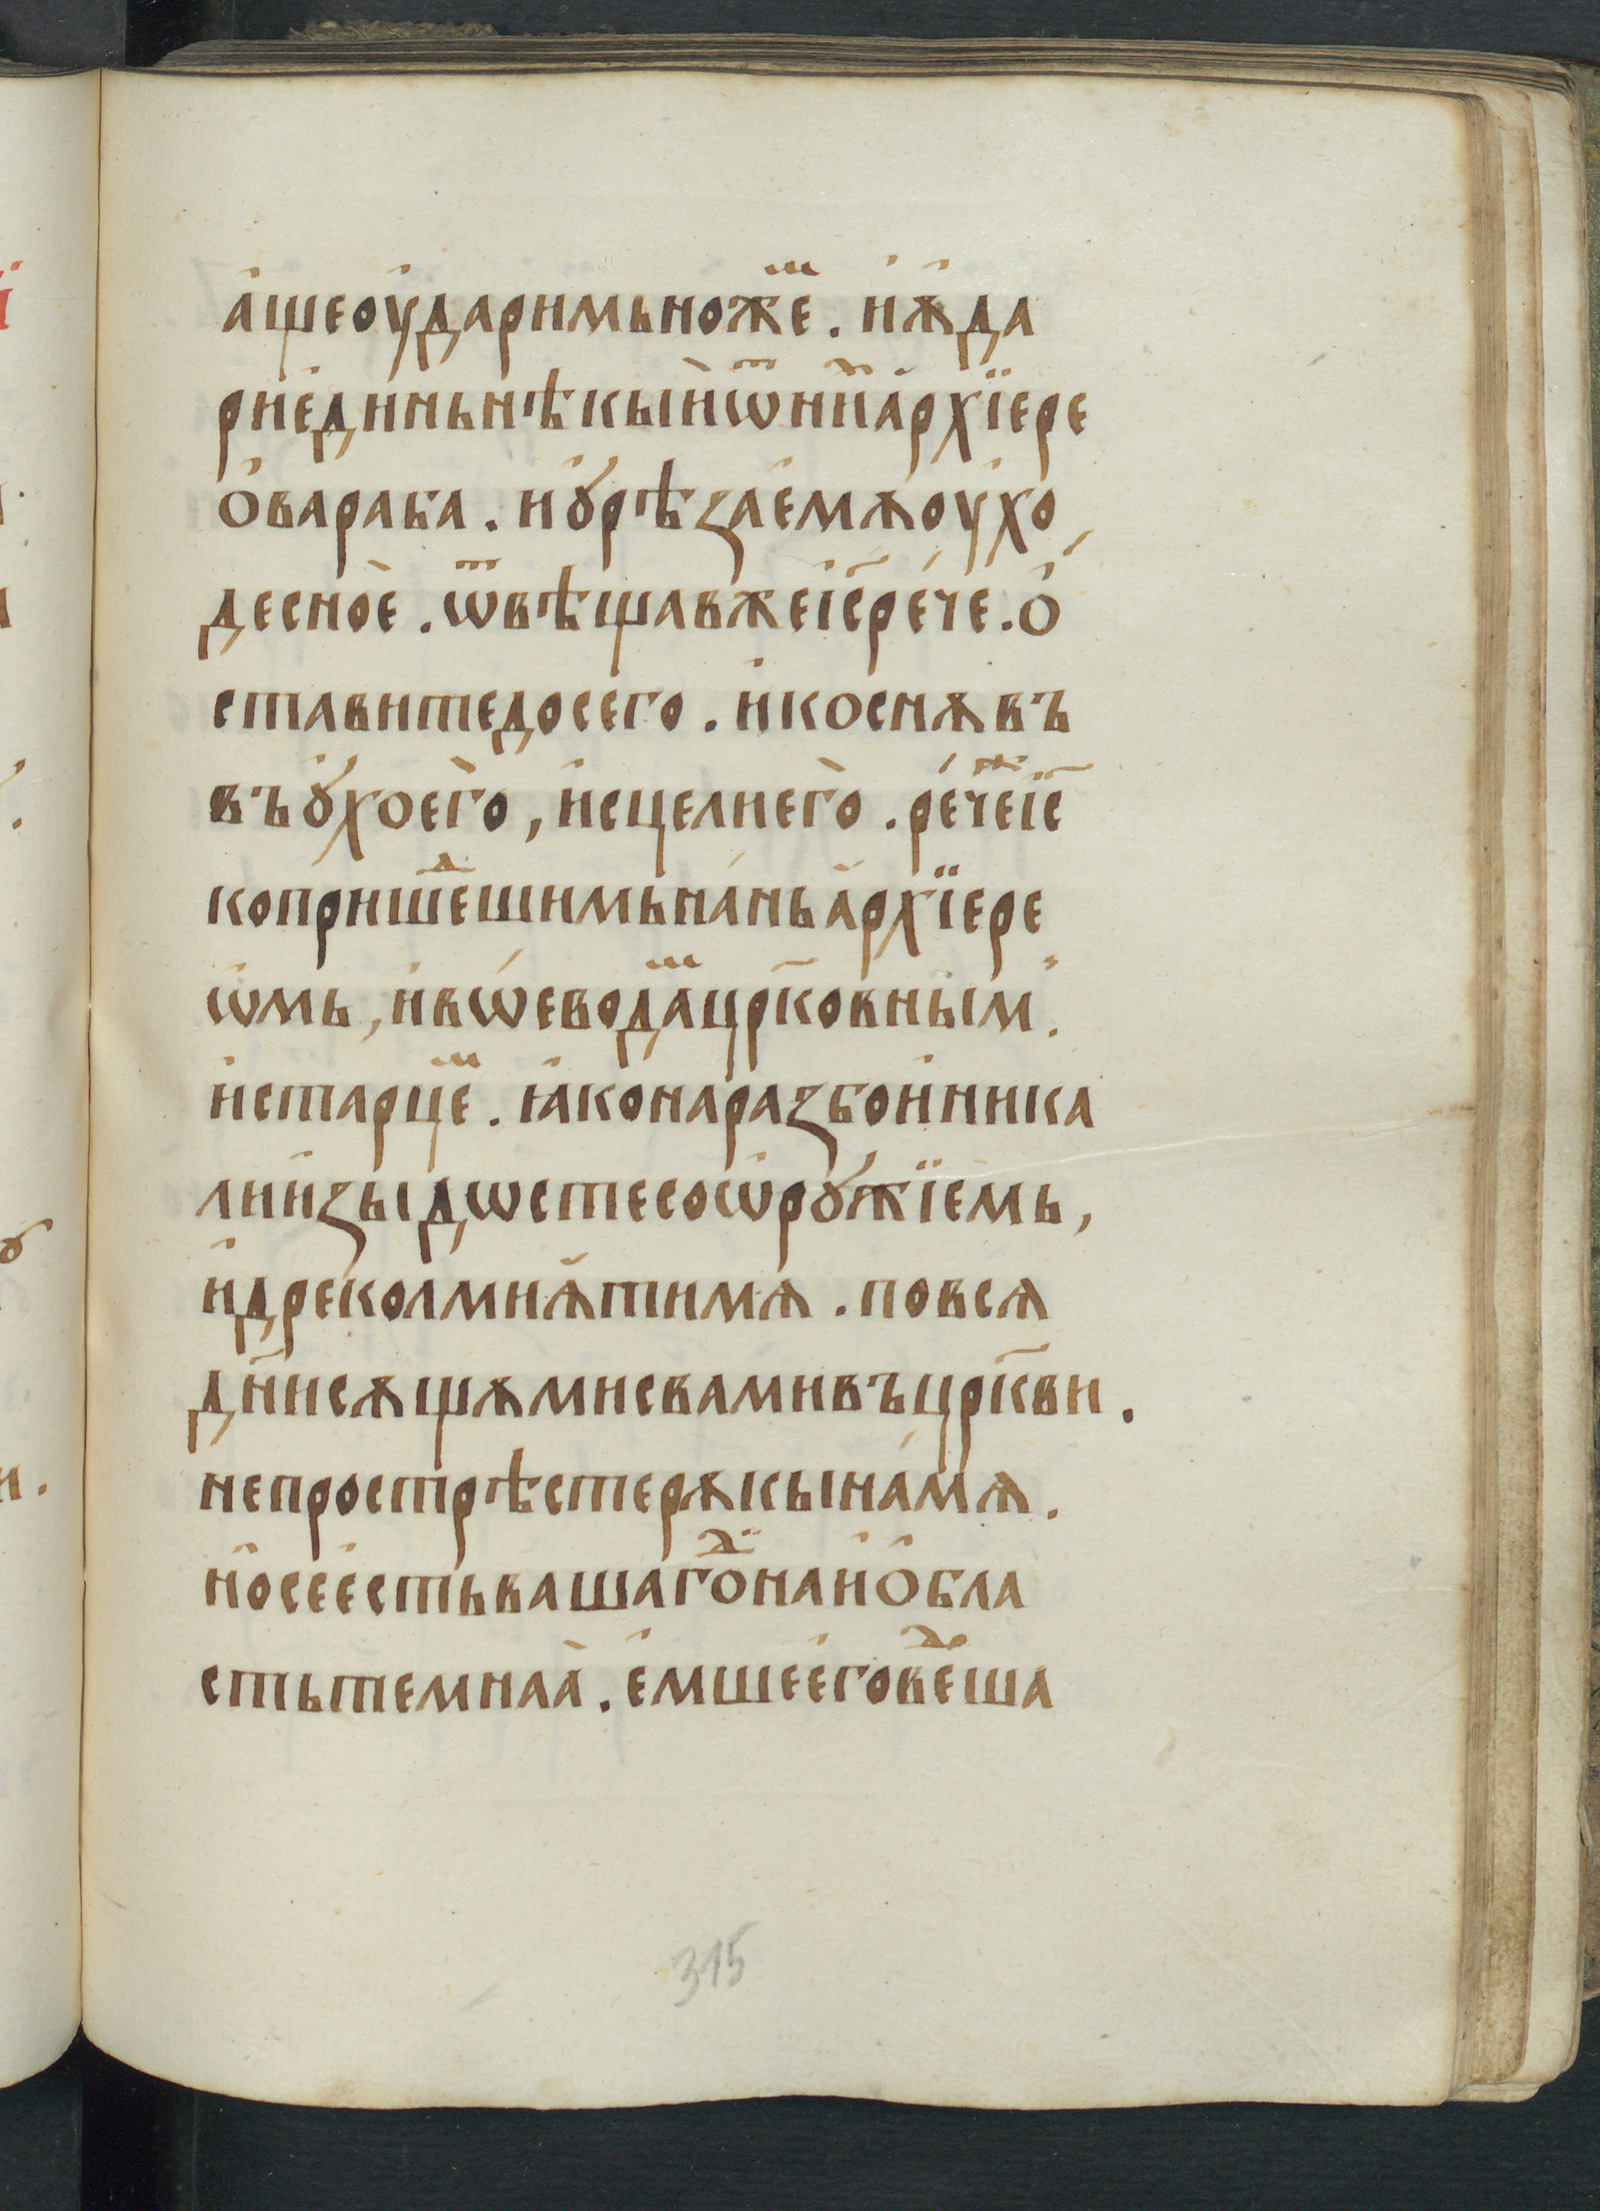 а҆щеоударимьноже́ⷨ. и҆ѫ҆да
риединьнѣкыи҆ѿни́ⷯа҆рхїере
о҆вараба. иꙋ҆рѣзаемѫоухо
десно̀е. ѿвѣщавжеі҆с҃рече. о҆
ставитедосего. и҆коснѫвъ
въꙋ҆хоего̀, и҆сцелиего̀. ре́чеⷤі҆с҃
копришеⷣшимьна́ньа҆рхїере
ѡ҆мь, и҆вѡеводаⷨцр҃ковныⷨм.
и҆старцеⷨ. ꙗ҆конаразбои҆ника
лии҆зыдѡстесоѡ҆рꙋжїемь,
и҆дреколмиѧ҆тимѧ. повсѧ
дн҃исѫщѫмисвамивъцр҃кви.
непрострѣстерѫкына́мѧ.
ни҆осее҆стьвашагоⷣинаио҆бла
стьтемнаа̀. е҆мшеегове́ⷣоша
315